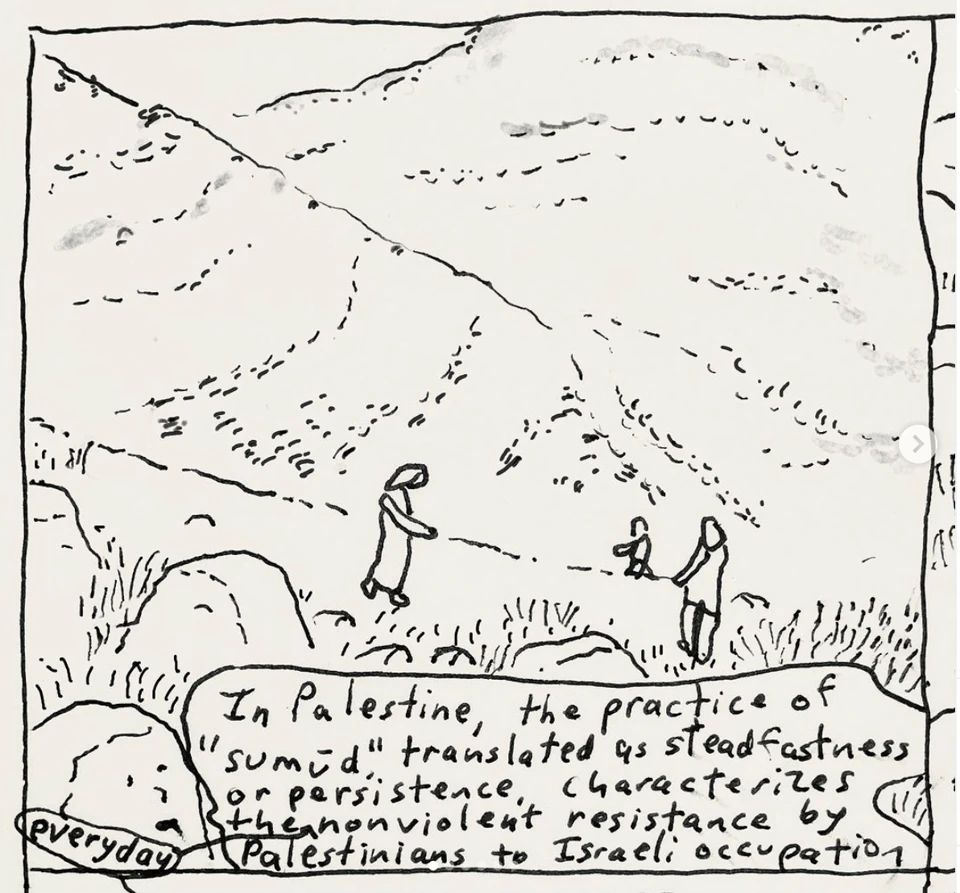 In Palestine, the practice of
"sumūd," translated as steadfastness
or persistence, characterizes
the everyday nonviolent resistance by
Palestinians to Israeli occupation